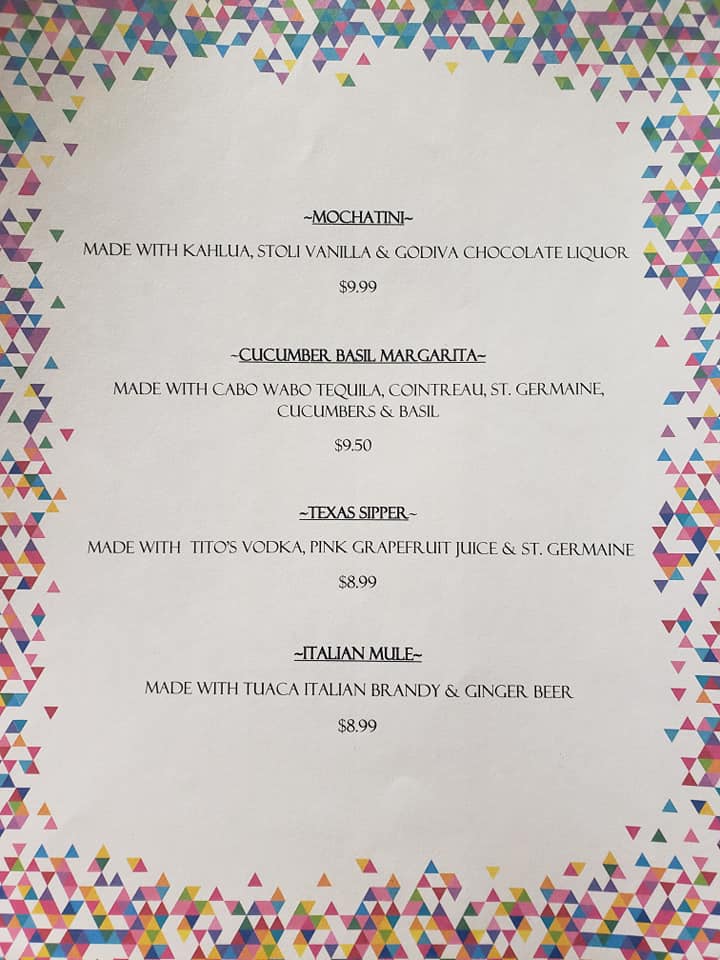 ~MOCHATINI~
MADE WITH KAHLUA, STOLI VANILLA & GODIVA CHOCOLATE LIQUOR
$9.99
~CUCUMBER BASIL MARGARITA~
MADE WITH CABO WABO TEQUILA, COINTREAU, ST. GERMAINE,
CUCUMBERS & BASIL
$9.50
~TEXAS SIPPER~
MADE WITH TITO'S VODKA, PINK GRAPEFRUIT JUICE & ST. GERMAINE
$8.99
~ITALIAN MULE~
MADE WITH TUACA ITALIAN BRANDY & GINGER BEER
$8.99